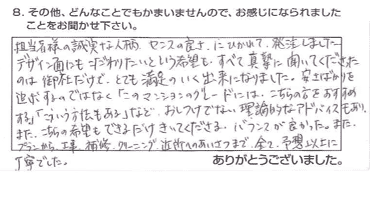 8. その他、どんなことでもかまいませんので、お感じになられました
ことをお聞かせ下さい。
担当者様の誠実な人柄、センスの良さ、にひかれて、発注しました。
デザイン面にもこだわりたいという希望も、すべて真摯に聞いてくださった
のは御社だけで、とても満足のいく出来になりました。安さばかりを
追求するのではなく「このマンションのグレードには、こちらの方をおすすめ
する」「こういう方法もある」など、おしつけでない理論的なアドバイスもあり、
また、こちらの希望もできるだけきいてくださる、バランスが良かった。また、
プランから、工事、補修、クリーニング、近所へのあいさつまで、全て、予想以上に
丁寧でした。
ありがとうございました。